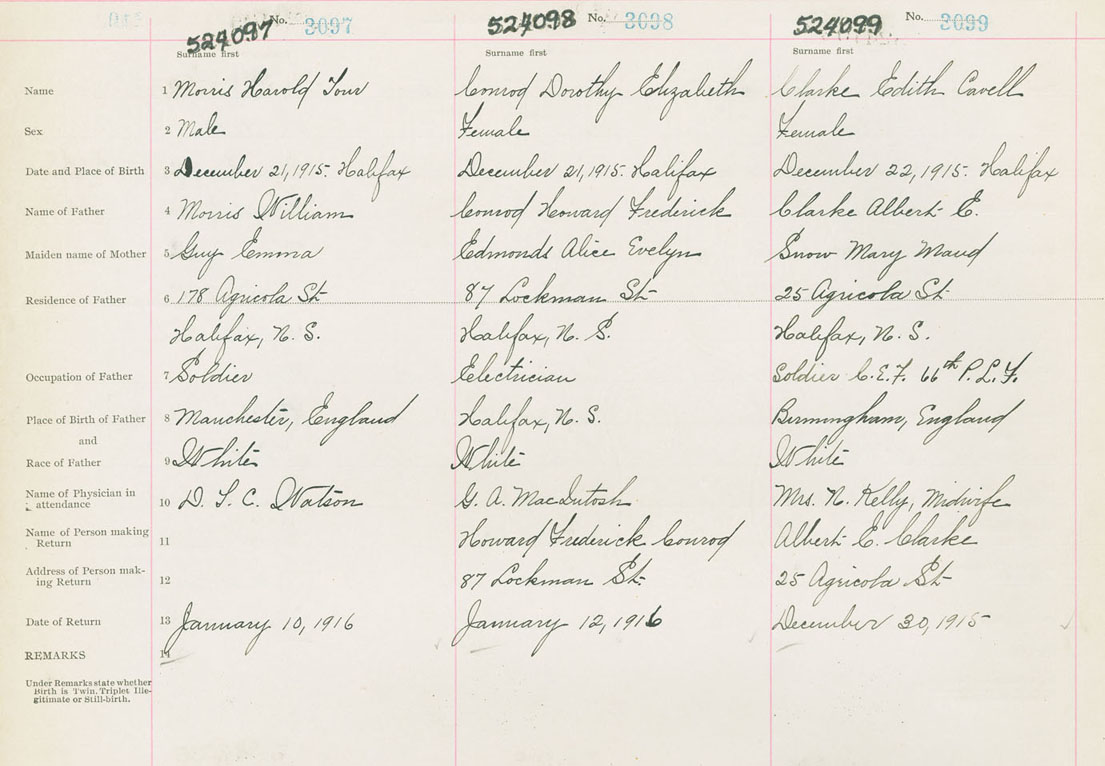 524097 No. 3097 524098 No. 3098 524099 No. 3099
Surname first Surname first Surname first
Name 1 Morris Harold Conrod Dorothy Elizabeth Clarke Edith Cavell
Sex 2 Male Female Female
Date and Place of Birth 3 December 21, 1915. Halifax December 21, 1915. Halifax December 22, 1915. Halifax
Name of Father 4 Morris William Conrod Howard Frederick Clarke Albert E.
Maiden name of Mother 5 Guy Emma Edmonds Alice Evelyn Snow Mary Maud
Residence of Father 6 178 Agricola St 87 Lockman St 25 Agricola St
Halifax, N. S. Halifax, N. S. Halifax, N. S.
Occupation of Father 7 Soldier Electrician Soldier C.E.F. 66th P.L.F.
Place of Birth of Father 8 Manchester, England Halifax, N. S. Birmingham, England
and
Race of Father 9 White White White
Name of Physician in
attendance 10 D. S. C. Watson G. A. MacIntosh Mrs. N. Kelly, Midwife
Name of Person making
Return 11 Howard Frederick Conrod Albert E. Clarke
Address of Person mak-
ing Return 12 87 Lockman St. 25 Agricola St
Date of Return 13 January 10, 1916 January 12, 1916 December 30, 1915
REMARKS 14
Under Remarks state whether
Birth is Twin, Triplet Ille-
gitimate or Still-birth.